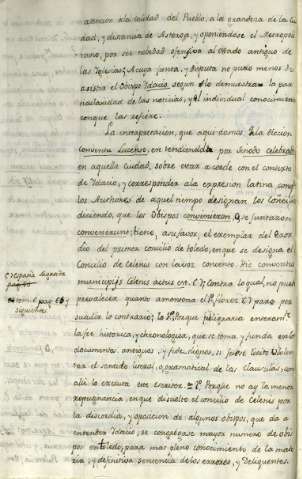 atencion a la calidad del Pueblo, a la grandeza de la Ciu
dad, y distancia de Astorga, y oponiendose el Metropoli
tano, por ser novedad ofensiva al estado antiguo de
las Iglesias; a cuya junta, y disputa no pudo menos de
asistir el Obispo Idacio, segun lo demuestra la par
ticularidad de las noticias, y el individual conocimiento
conque las refiere.
La interpretacion, que aqui damos a la diction
Conventu Lucense, entendiendola por Synodo celebrado
en aquella ciudad, sobre estar acorde con el contexto
de Idacio, y corresponder a la expresion latina, con q.
los Authores de aquel tiempo designan los Concilios
diciendo, que los Obispos convinieron, o se juntaron
convenerunt; tiene a su favor el exemplar del
dio del primer concilio de Toledo, en que se designa el
Concilio de Celenis con la voz conventu. Hic conventu
municipij Celenis actus est. Contra lo qual, no puede
prevalecer quanto amontona el P. Florez para per
suadir lo contrario: lo 1º. Porque peligraria enteram.te
la fee historica, y chronologica, que se toma, y funda en los
documentos antiguos, y fide dignos, si fuere licito alte
rar el sentido literal, o gramatical de las clausulas, con
solo la excusa
 2º. Porque no ay la menor
repugnancia, en que disuelto el concilio de Celenis por
la discordia, y oposicion de algunos obispos, que da a
entender Idacio, se congregase mayor numero de obis
pos en Toledo, para mas pleno conocimiento de la mate
ria, y definitiva sentencia de los errores, y delinquentes.
España Sagrada
tom. 6 pag. 66 y
siguientes